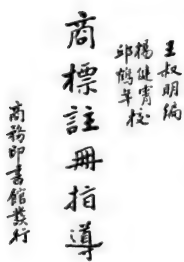 王叔明编
楊健霄
邱鶴年校
商標註冊指導
商務印書館發行